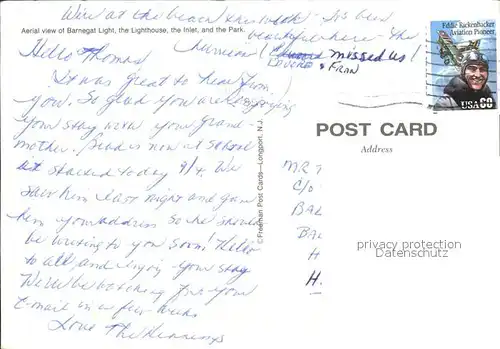 We're at the beach this week - It's been
beautiful here - The
Aerial view of Barnegat Light, the Lighthouse, the Inlet, and the Park.
missed us!
& FRAN
Hello Thomas,
It was great to hear from
you. So glad you are enjoying
your stay with your grand-
mother. is now at school
started today 9/4. We
saw him last night and gave
him your address so he should
be writing to you soon! Hello
to all and enjoy your stay
We'll be watching for your
E-mail in a few weeks
Love The Hennings
© Freeman Post Cards—Longport, N.J.
Eddie Rickenbacker
Aviation Pioneer
USA 60
POST CARD
Address
MR T
C/O
BAL
BAL
H
H.
privacy protection
Datenschutz